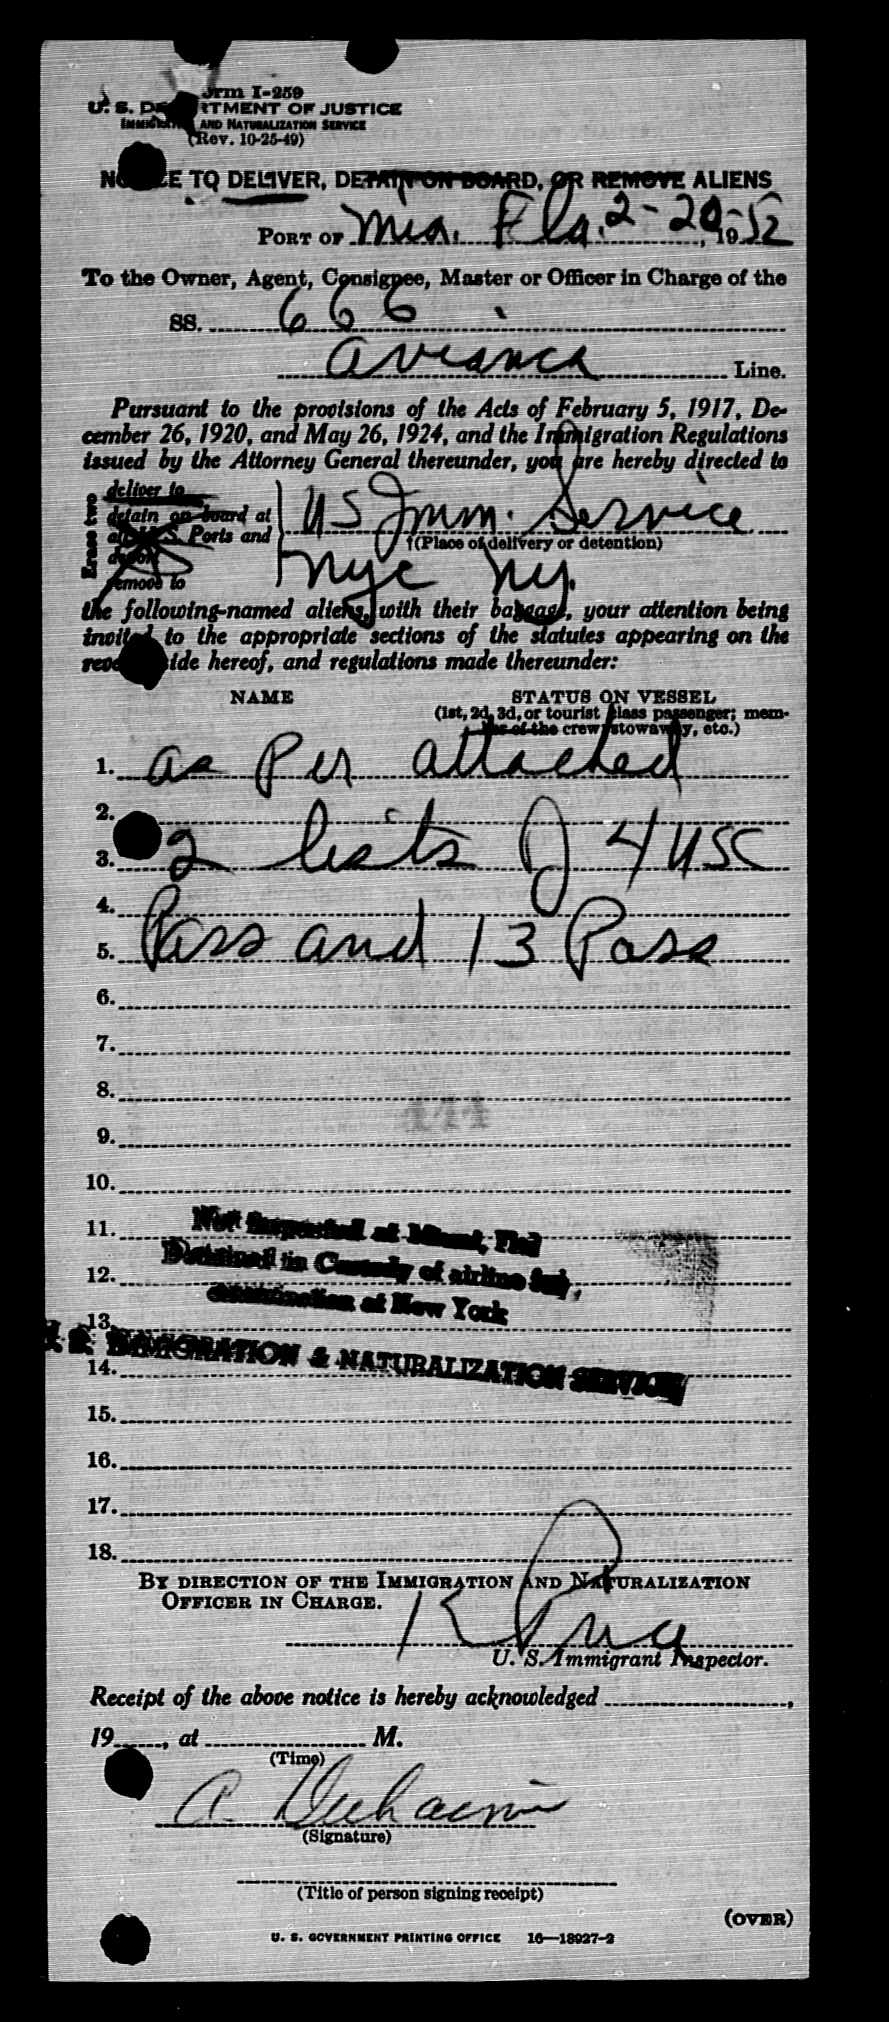 Form I-259
U. S. DEPARTMENT OF JUSTICE
IMMIGRATION AND NATURALIZATION SERVICE
(Rev. 10-25-49)
NOTICE TO DELIVER, DETAIN ON BOARD, OR REMOVE ALIENS
PORT OF Mia. Fla. 2-20, 1952
To the Owner, Agent, Consignee, Master or Officer in Charge of the
SS. 666
Avianca Line.
Pursuant to the provisions of the Acts of February 5, 1917, De-
cember 26, 1920, and May 26, 1924, and the Immigration Regulations
issued by the Attorney General thereunder, you are hereby directed to
Erase two
deliver to
detain on board at
all U. S. Ports and
deport
remove to
US Imm. Service
(Place of delivery or detention)
nyc ny.
the following-named aliens, with their baggage, your attention being
invited to the appropriate sections of the statutes appearing on the
reverse side hereof, and regulations made thereunder:
NAME STATUS ON VESSEL
(1st, 2d, 3d, or tourist class passenger; mem-
ber of the crew, stowaway, etc.)
1. as Per attached
2.
3. 2 lists of 4 USC
4.
5. Pass and 13 Pass
6.
7.
8.
9.
10.
11. Not Inspected at Miami, Fla
12. Detained in Custody of airline for
examination at New York
13.
U. S. IMMIGRATION & NATURALIZATION SERVICE
14.
15.
16.
17.
18.
BY DIRECTION OF THE IMMIGRATION AND NATURALIZATION
OFFICER IN CHARGE.
U. S. Immigrant Inspector.
Receipt of the above notice is hereby acknowledged
19 , at M.
(Time)
(Signature)
(Title of person signing receipt)
(OVER)
U. S. GOVERNMENT PRINTING OFFICE 16—18927-2